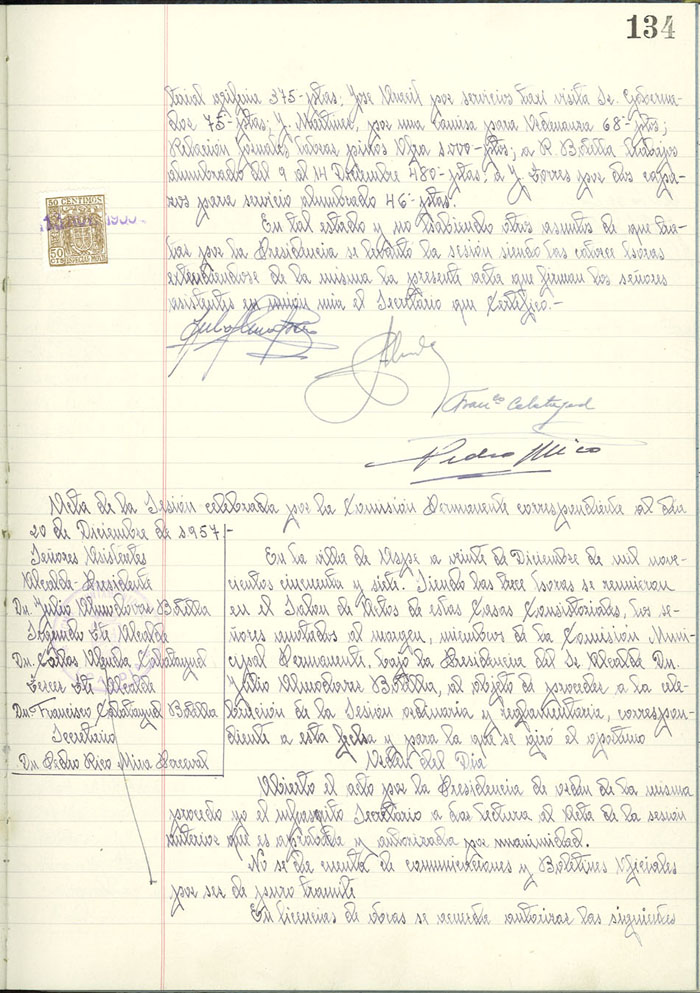 134
375-ptas; Jose por servicios taxi visita Sr. Goberna-
dor 75-ptas; J. Martinez, por una camisa para 68-ptas;
Relación jornales labores pinos 1.000-ptas; a R. Botella trabajos
alumbrado del 9 al 14 Diciembre 480-ptas; a J. Torres por dos
para servicio alumbrado 46-ptas.
En tal estado y no habiendo otros asuntos de que tra-
tar por la Presidencia se levantó la sesión siendo las catorce horas
extendiendose de la misma la presente acta que firman los señores
asistentes en union mia el Secretario que Certifico.-
50 CENTIMOS
50
CTS
ESPECIAL MOVIL
Franco Calatayud
Pedro Mico
Acta de la Sesión celebrada por la Comisión Permanente correspondiente al dia
20 de Diciembre de 1957/-
Señores Asistentes
Alcalde-Presidente
Dn. Julio Almodovar Botella
Segundo Tte Alcalde
Dn. Carlos Calatayud
Tercer Tte Alcalde
Dn. Francisco Calatayud Botella
Secretario
Dn Pedro Rico Mira
En la villa de Aspe a veinte de Diciembre de mil nove-
cientos cincuenta y siete. Siendo las trece horas se reunieron
en el Salon de Actos de estas Casas Consistoriales, los se-
ñores anotados al margen, miembros de la Comisión Muni-
cipal Permanente, bajo la Presidencia del Sr Alcalde Dn.
Julio Almodovar Botella, al objeto de proceder a la cele-
bración de la Sesión ordinaria y reglamentaria, correspon-
diente a esta fecha y para la que se giró el oportuno
Orden del Dia
Abierto el acto por la Presidencia de orden de la misma
procedo yo el infrascrito Secretario a dar lectura al Acta de la sesión
anterior que es aprobada y autorizada por unanimidad.
No se da cuenta de comunicaciones y Boletines Oficiales
por ser de puro tramite
En licencias de obras se acuerda autorizar las siguientes